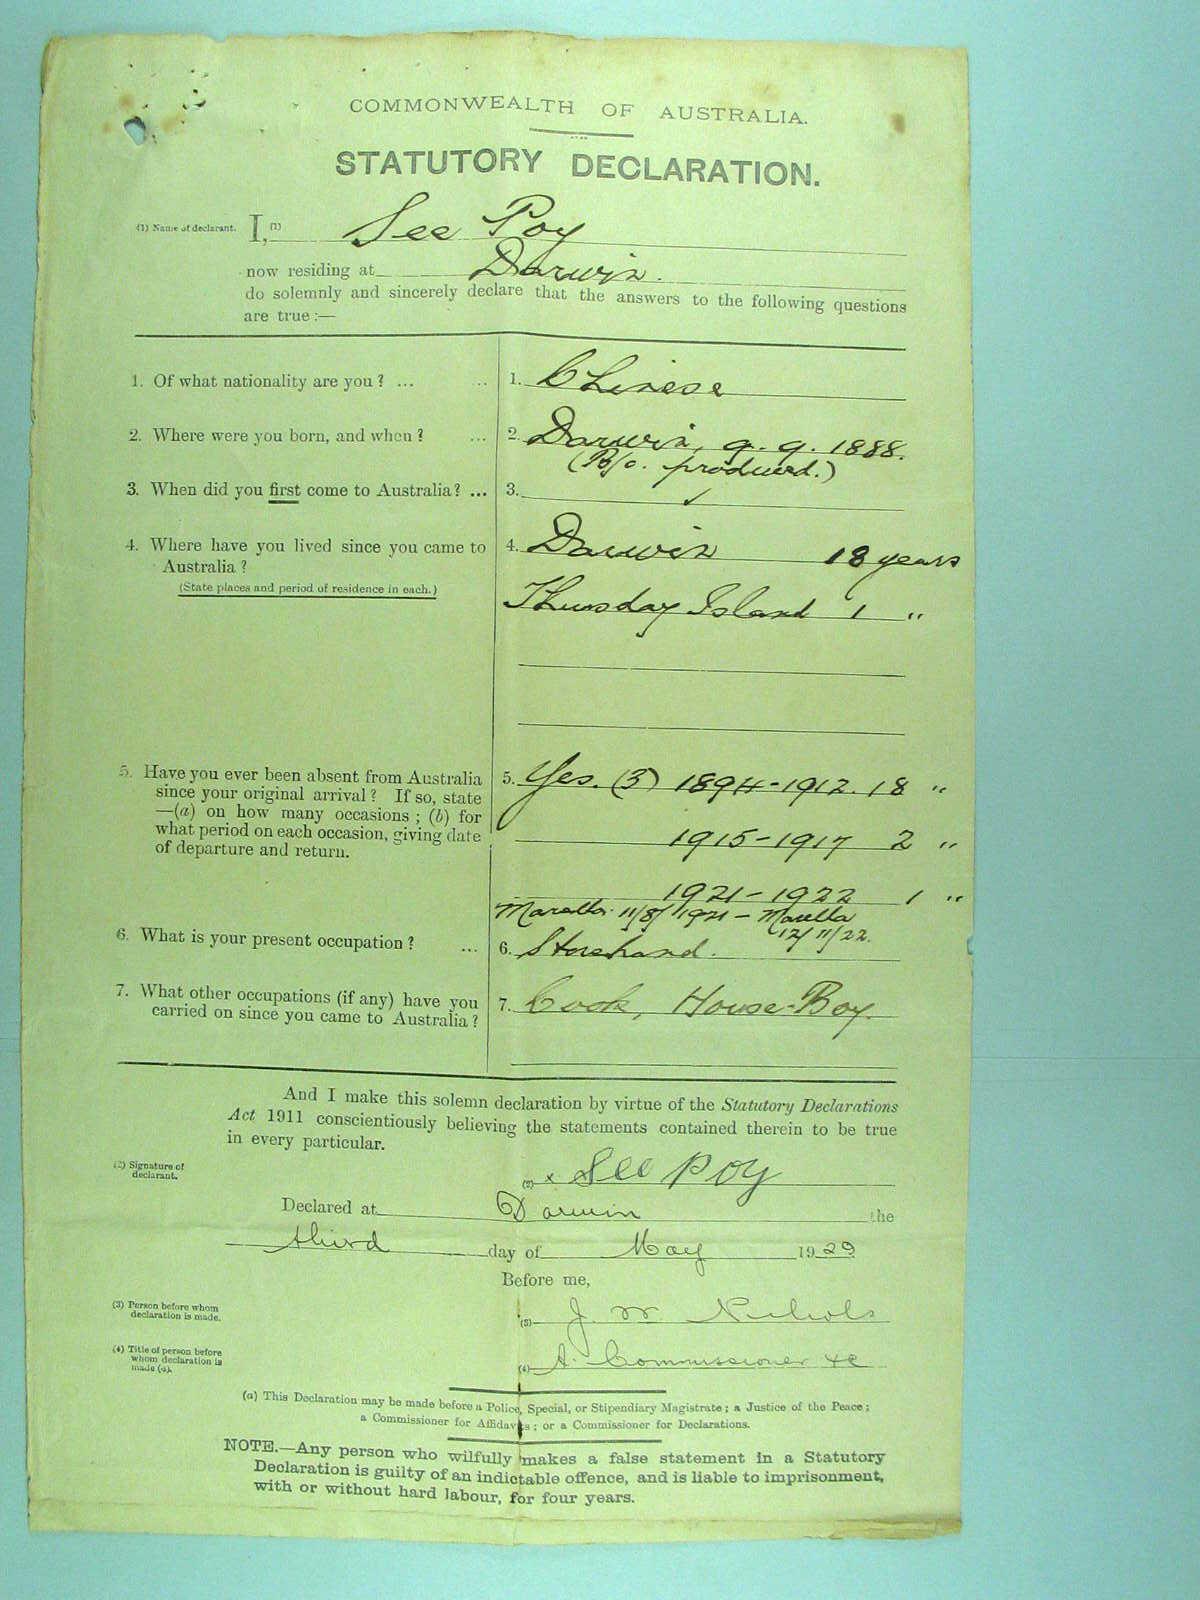 COMMONWEALTH OF AUSTRALIA.
STATUTORY DECLARATION.
(1) Name of declarant. I, (1) See Poy
now residing at Darwin.
do solemnly and sincerely declare that the answers to the following questions
are true :—
1. Of what nationality are you ? ... .. 1. Chinese
2. Where were you born, and when ? ... 2. Darwin, 9. 9. 1888.
(B/c. produced.)
3. When did you first come to Australia ? ... 3. ✓
4. Where have you lived since you came to 4. Darwin 18 years
Australia ?
(State places and period of residence in each.)
Thursday Island 1 "
5. Have you ever been absent from Australia 5. Yes. (3) 1894-1912. 18 "
since your original arrival ? If so, state
—(a) on how many occasions ; (b) for
what period on each occasion, giving date 1915-1917 2 "
of departure and return.
1921-1922 1 "
Marella 11/8/1921 - Marella
12/11/22.
6. What is your present occupation ? ... 6. Storehand.
7. What other occupations (if any) have you 7. Cook, House-Boy.
carried on since you came to Australia ?
And I make this solemn declaration by virtue of the Statutory Declarations
Act 1911 conscientiously believing the statements contained therein to be true
in every particular.
(2) Signature of
declarant. (2) x See Poy
Declared at Darwin the
third day of May 1929
Before me,
(3) Person before whom
declaration is made. (3) J. W. Nichols
(4) Title of person before
whom declaration is
made (a). (4) A. Commissioner &c
(a) This Declaration may be made before a Police, Special, or Stipendiary Magistrate ; a Justice of the Peace ;
a Commissioner for Affidavits ; or a Commissioner for Declarations.
NOTE.—Any person who wilfully makes a false statement in a Statutory
Declaration is guilty of an indictable offence, and is liable to imprisonment,
with or without hard labour, for four years.